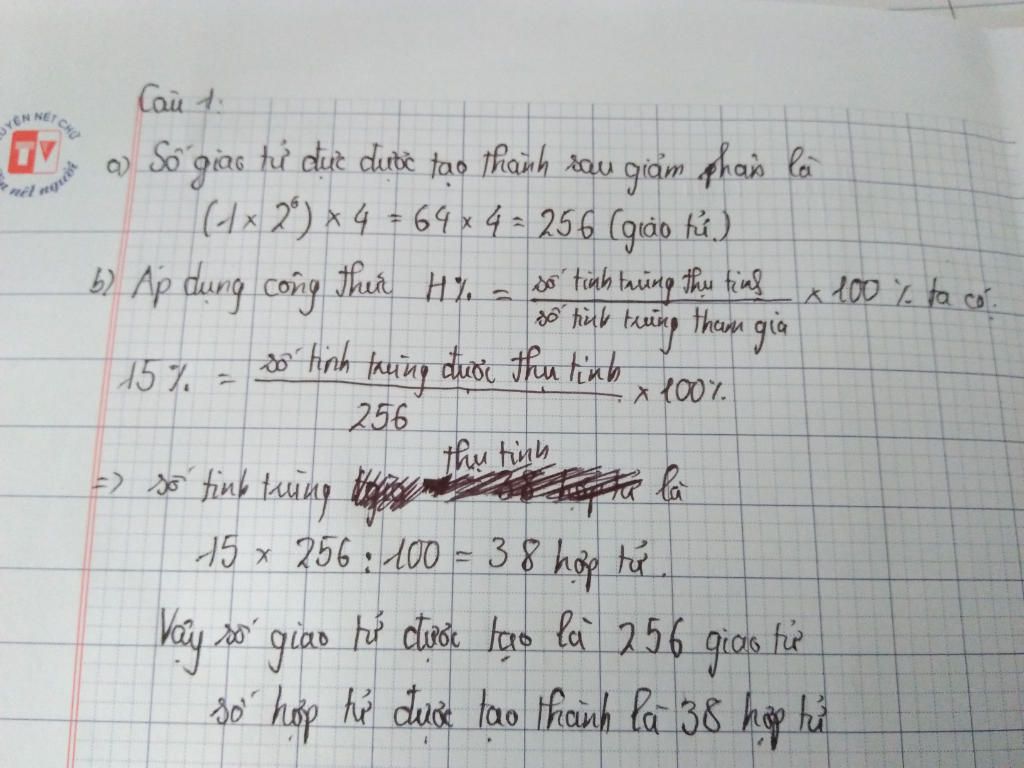 Câu 1:
LUYỆN NÉT CHỮ
TV
nết người
a) Số giao tử đực được tạo thành sau giảm phân là
(1 × 2⁶) × 4 = 64 × 4 = 256 (giao tử.)
b) Áp dụng công thức H% = số tinh trùng thụ tinh / số tinh trùng tham gia × 100 % ta có:
15 % = số tinh trùng được thụ tinh / 256 × 100%
thụ tinh
=> số tinh trùng là
15 × 256 : 100 = 38 hợp tử.
Vậy số giao tử được tạo là 256 giao tử
số hợp tử được tạo thành là 38 hợp tử